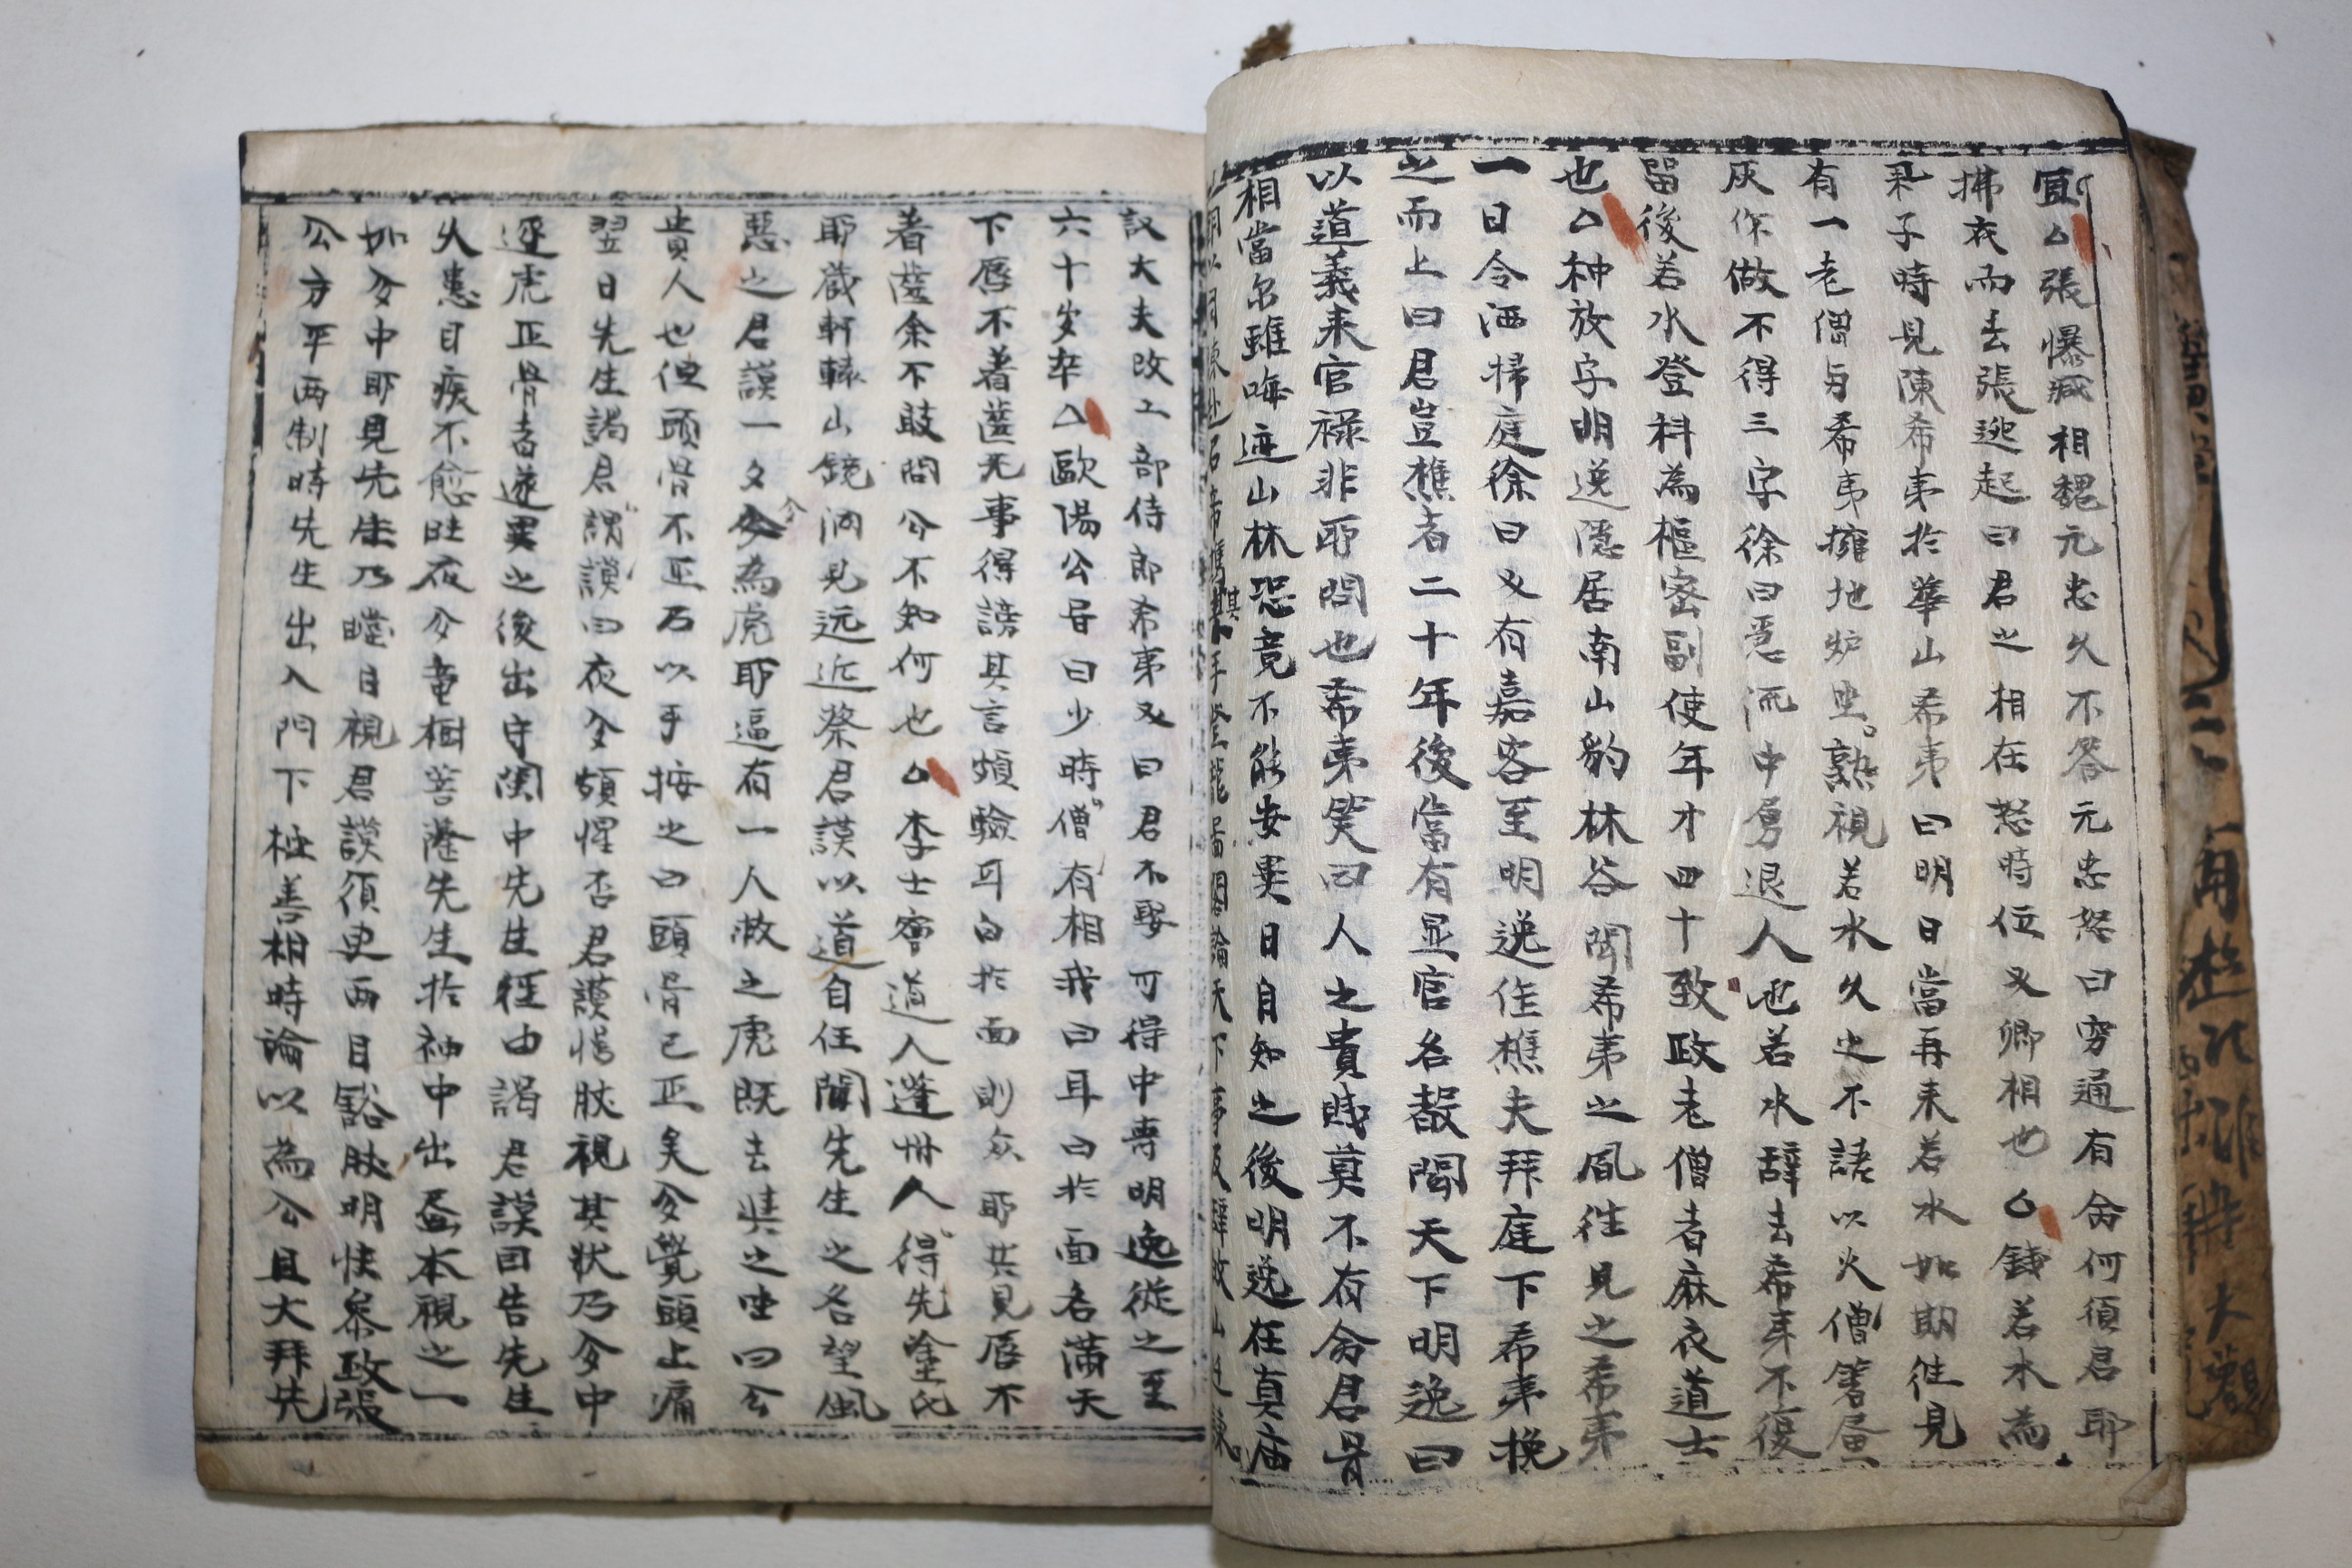 宜△張憬藏相魏元忠久不答元忠怒曰穷通有命何須君耶
拂衣而去張遽起曰君之相在怒時位又卿相也△錢若水為
子時見陳希夷於華山希夷曰明日當再来若水如期往見
有一老僧与希夷擁地炉坐熟視若水久之不語以火僧箸畫
灰作做不得三字徐曰急流中勇退人也若水辞去希夷不復
留後若水登科為樞密副使年才四十致政老僧者麻衣道士
也△种放字明逸隱居南山豹林谷聞希夷之風往見之希夷
一日令洒掃庭徐曰又有嘉客至明逸作樵夫拜庭下希夷挽
之而上曰君豈樵者二十年後當有显官名聲聞天下明逸曰
以道義来官禄非所問也希夷笑曰人之貴賤莫不有命君骨
相當尔雖晦迹山林恐竟不能安異日自知之後明逸在真庙
議大夫改工部侍郎希夷又曰君不娶可得中壽明逸從之至
六十岁卒△歐陽公㫖曰少時僧有相我曰耳白於面名滿天
下唇不著齒无事得謗其言頗驗耳白於面則众所共見唇不
著齒余不敢問公不知何也△李士寧道人蓬州人得先塗氏
所藏軒轅山鏡洞見远近蔡君謨以道自任聞先生之名望風
惡之君謨一夕夢為虎所逼有一人救之虎既去與之坐曰公
貴人也但頭骨不正乃以手按之曰頭骨已正矣夢覺頭上痛
翌日先生謁君謂謨曰夜夢頗惺否君謨愕然視其狀乃夢中
逐虎正骨者遂異之後出守闽中先生徑由謁君謨因告先生
久患目疾不愈昨夜夢竜樹菩薩先生於袖中出盃本視之一
如夢中所見先生乃瞪目視君謨須臾两目豁然明快參政張
公方平两制時先生出入門下極善相時論以為公且大拜先